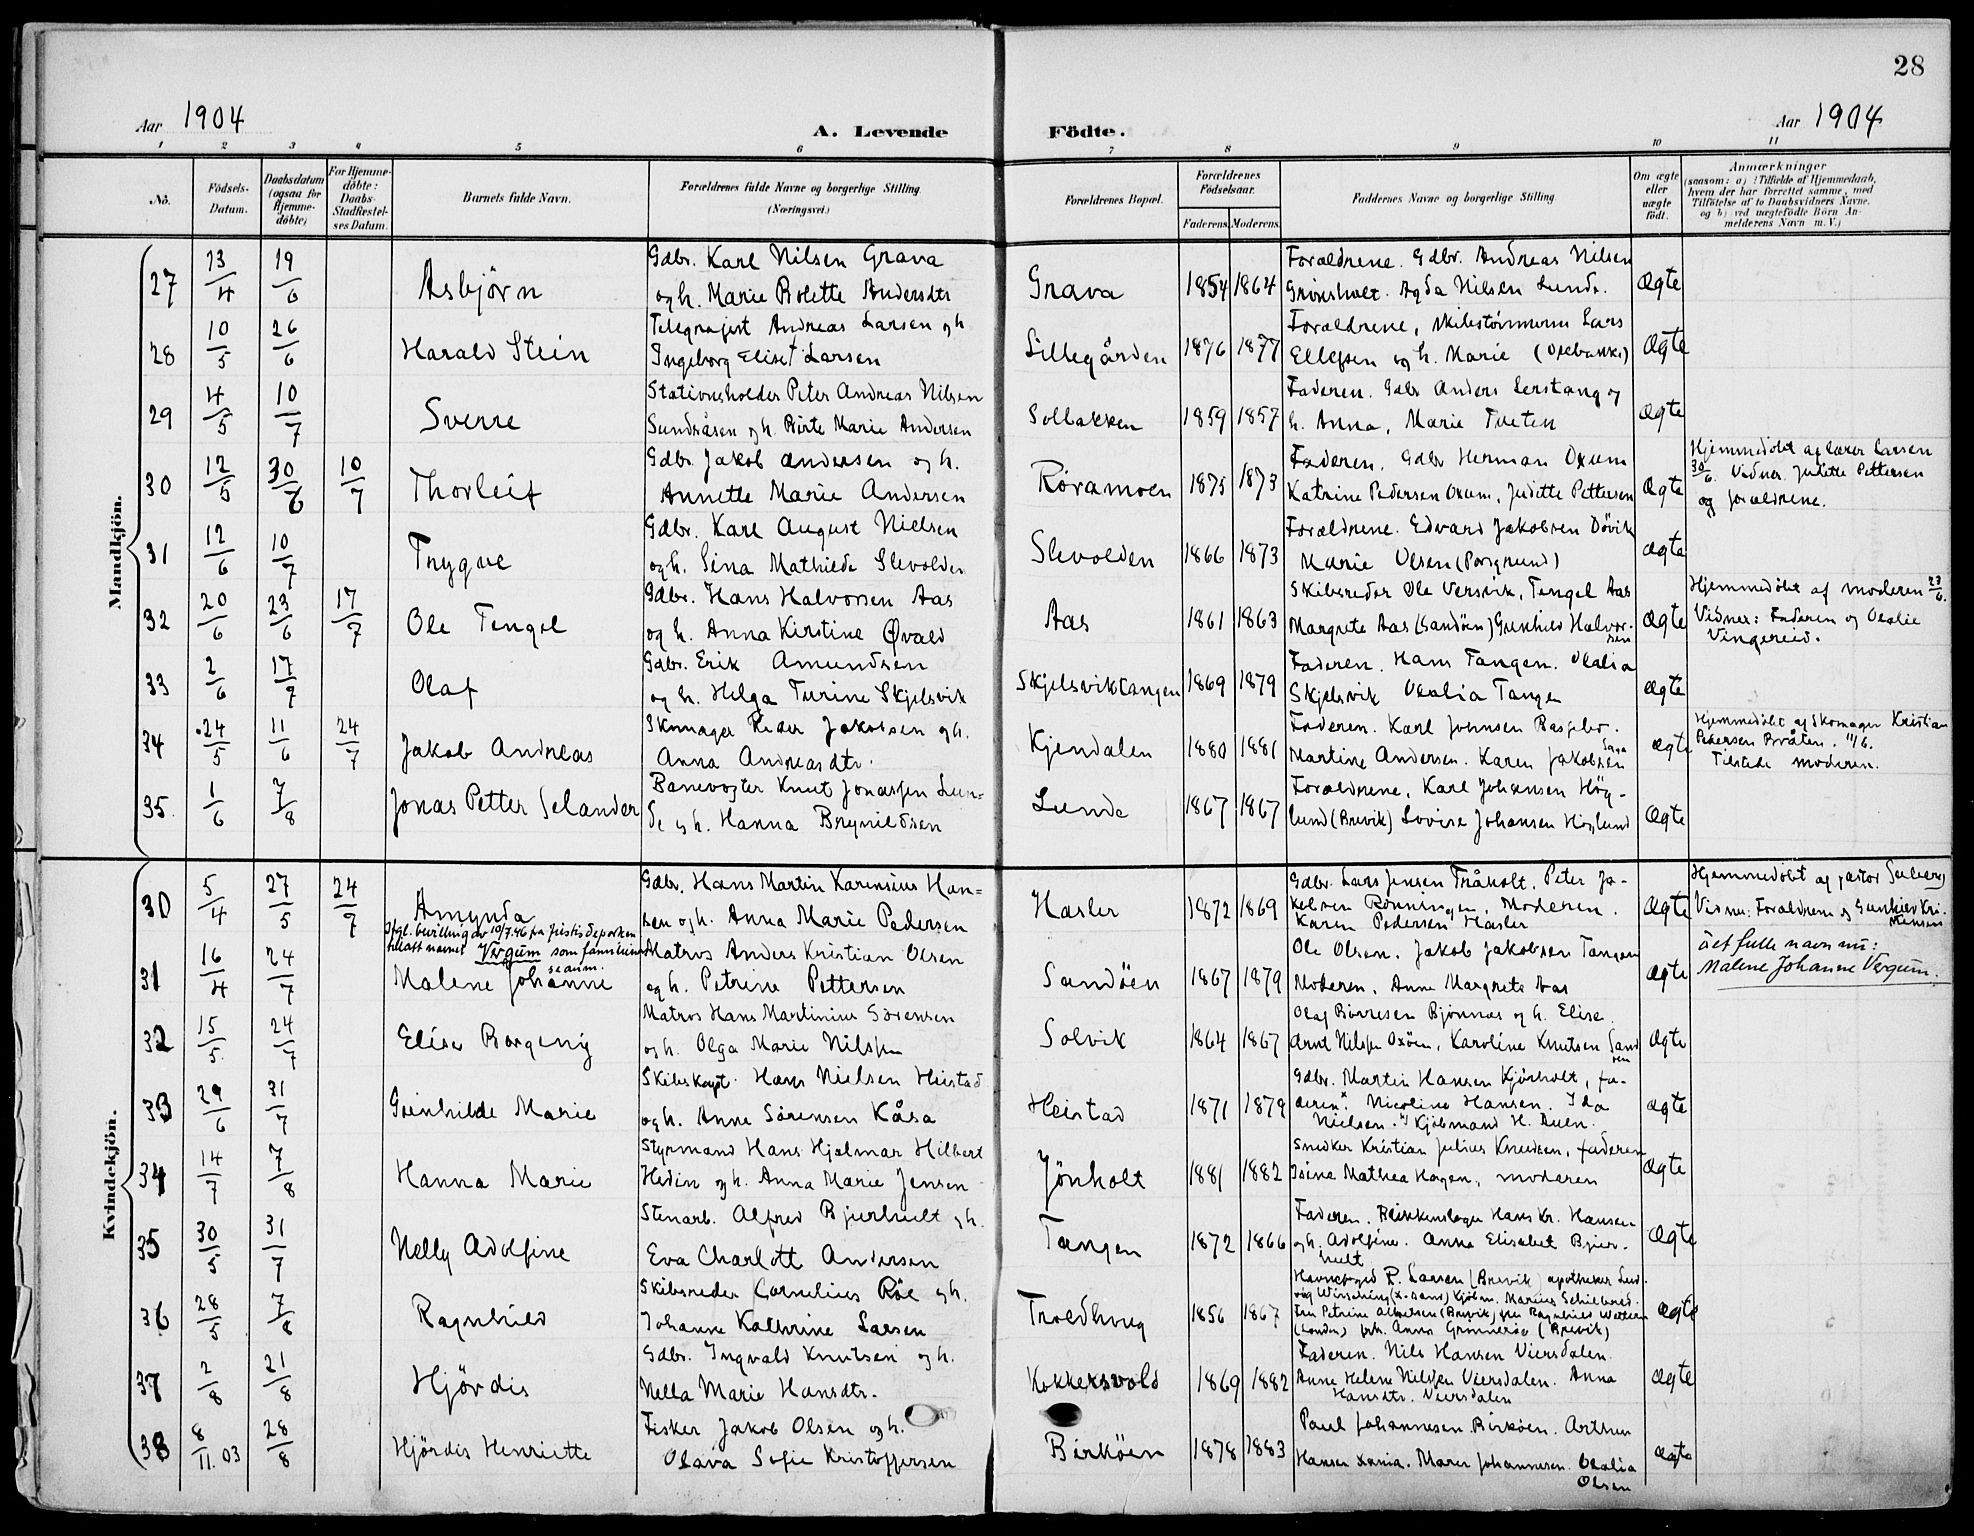 28
Aar 1904
A. Levende Födte.
Aar 1904
1 2 3 4 5 6 7 8 9 10 11
No.
Födsels-Datum.
Daabsdatum (ogsaa for Hjemme-döbte)
For Hjemme-döbte: Daabs-Stadfæstel-ses Datum.
Barnets fulde Navn.
Forældrenes fulde Navne og borgerlige Stilling (Næringsvei.)
Forældrenes Bopæl.
Forældrenes Födselsaar. Faderens. Moderens.
Faddernes Navne og borgerlige Stilling
Om ægte eller uægte födt.
Anmærkninger
(saasom: a) i Tilfælde af Hjemmedaab,
hvem der har forrettet samme, med
Tilföielse af to Daabsvidners Navne,
og b) ved uægtefödte Börn An-
melderens Navn m. V.)
Mandkjön.
27 23/4 19/6 Asbjörn
Gdbr. Karl Nilsen Grava
og h. Marie Bolette Andersdtr
Grava 1854 1864
Forældrene. Gdbr. Andreas Nilsen
Grönsholt. Agda Nilsen Lunde.
Ægte
28 10/5 26/6 Harald Stein
Telegrafist Andreas Larsen og h
Ingeborg Eliset Larsen
Lillegården 1876 1877
Forældrene, skibstömmerm Lars
Ellefsen og h. Marie
Ægte
29 4/5 10/7 Sverre
Stationsholder Peter Andreas Nilsen
Sundsåsen og h. Birte Marie Andersen
Sollakken 1859 1857
Faderen. Gdbr Anders Lerstang og
h. Anna, Marie Tveten
Ægte
30 12/5 30/6 10/7 Thorleif
Gdbr Jakob Andersen og h.
Annette Marie Andersen
Röramoen 1875 1873
Faderen. Gdbr Herman Oxum
Katrine Pedersen Oxum, Juditte Pettersen
Ægte
Hjemmedöbt af lærer Larsen
30/6. Vidner Juditte Pettersen
og forældrene.
31 12/6 10/7 Trygve
Gdbr. Karl August Nielsen
og h. Sina Mathilde Slevolden
Slevolden 1866 1873
Forældrene. Edvard Jakobsen Dövik
Marie Olsen (Porsgrund)
Ægte
32 20/6 23/6 17/7 Ole Tengel
Gdbr. Hans Halvorsen Aas
og h. Anna Kirstine Øvald
Aas 1861 1863
Skibsreder Ole Versvik, Tengel Aas
Margrete Aas (Sandöen) Gunhild Halvor-
sen
Ægte
Hjemmedöbt af moderen 23/6.
Vidner: Faderen og Oxalie
Vingereid.
33 2/6 17/7 Olaf
Gdbr. Erik Amundsen
og h. Helga Turine Skjelsvik
Skjelsviktangen 1869 1879
Faderen. Hans Tangen. Oxalia
Skjelsvik Oxalia Tangen
Ægte
34 24/5 11/6 24/7 Jakob Andreas
Skomager Peder Jakobsen og h.
Anna Andreasdtr.
Kjendalen 1880 1881
Faderen. Karl Johnsen
Martine Andersen. Karen Jakobsen
Ægte
Hjemmedöbt af Skomager Kristian
Pedersen Bråten. 11/6.
Tilstede moderen.
35. 1/6 7/8 Jonas Petter Selander
Banevogter Knut Jonassen Lun-
de og h. Hanna Brynildsen
Lunde 1867 1867
Forældrene, Karl Johansen Hög-
lund (Brevik) Lovise Johansen Höglund
Ægte
Kvindekjön.
30 5/4 27/5 24/7 Amynda
Gdbr. Hans Martin Karensius Han-
sen og h. Anna Marie Pedersen
Hasler 1872 1869
Gdbr. Lars Jensen Tråholt. Peter Ja-
kobsen Rönningen. Moderen.
Karen Pedersen Hasler
Ægte
Hjemmedöbt af pastor
Vidner: Forældrene og Gunhild Kri-
stensen
Ifgl. bevilling av 10/7.46 fra justisdep
tillatt navnet Vergum som familien
31 16/4 24/7 Malene Johanne
Matros Anders Kristian Olsen
og h. Petrine Pettersen
Sandöen 1867 1879
Ole Olsen. Jakob Jakobsen Tangen
Moderen. Anne Margrete Aas
Ægte
Det fulle navn nu:
Malene Johanne Vergum.
32 15/5. 24/7 Elise Borgeny
Matros Hans Martinius Sörensen
og h. Olga Marie Nilssen
Solvik 1864 1867
Olaf Börresen Björnnas og h. Elise.
Arnt Nilssen Oxöen, Karoline Knutsen Sand
öen
Ægte
33 29/6 31/7 Gunhilde Marie
Skibskapt. Hans Nielsen Heistad
og h. Anne Sörensen Kåsa
Heistad 1871 1879
Gdbr. Martin Hansen Kjönholt, fa-
deren. Nicoline Hansen. Ida
Nielsen. Kjöbmand H. Buen.
Ægte
34 14/7 7/8 Hanna Marie
Styrmand Hans Hjalmar Hilbert
Hedin og h. Anna Marie Jensen
Jönholt 1881 1882
Snedker Kristian Julius Knudsen, faderen
Isina Mathea Hagen, moderen
Ægte
35 30/5 31/7 Nelly Adolfine
Stenarb. Alfred Bjurhult og h.
Eva Charlott Andersen
Tangen 1872 1866
Faderen. Blikkenslager Hans Kr. Hansen
og h. Adolfine. Anna Elisabet Bjur-
hult
Ægte
36 28/5 7/8 Ragnhild
Skibsreder Cornelius Röe og h.
Johanne Kathrine Larsen
Troldhaug 1856 1867
Havnefoged P. Larsen (Brevik) apotheker Lud-
vig Winsching (X.sand) Kjöbm. Marius
fru Petrine (Brevik) fru Ragnhild
(London) frk. Anna Grönneröe (Brevik)
Ægte
37 2/8 21/8 Hjördis
Gdbr. Ingvald Knutsen og h.
Nella Marie Hansdtr.
Kokkersvold 1869 1882
Faderen. Nils Hansen Viersdalen.
Anne Helene Nilssen Viersdalen. Anna
Hansdtr. Viersdalen
Ægte
38 8/11.03 28/8 Hjördis Henriette
Fisker Jakob Olsen og h.
Olava Sofie Kristoffersen
Birköen 1878 1883
Paul Johannesen Birköen. Arthur
Hansen Xania. Maren Johannesen. Oxalia
Olsen
Ægte